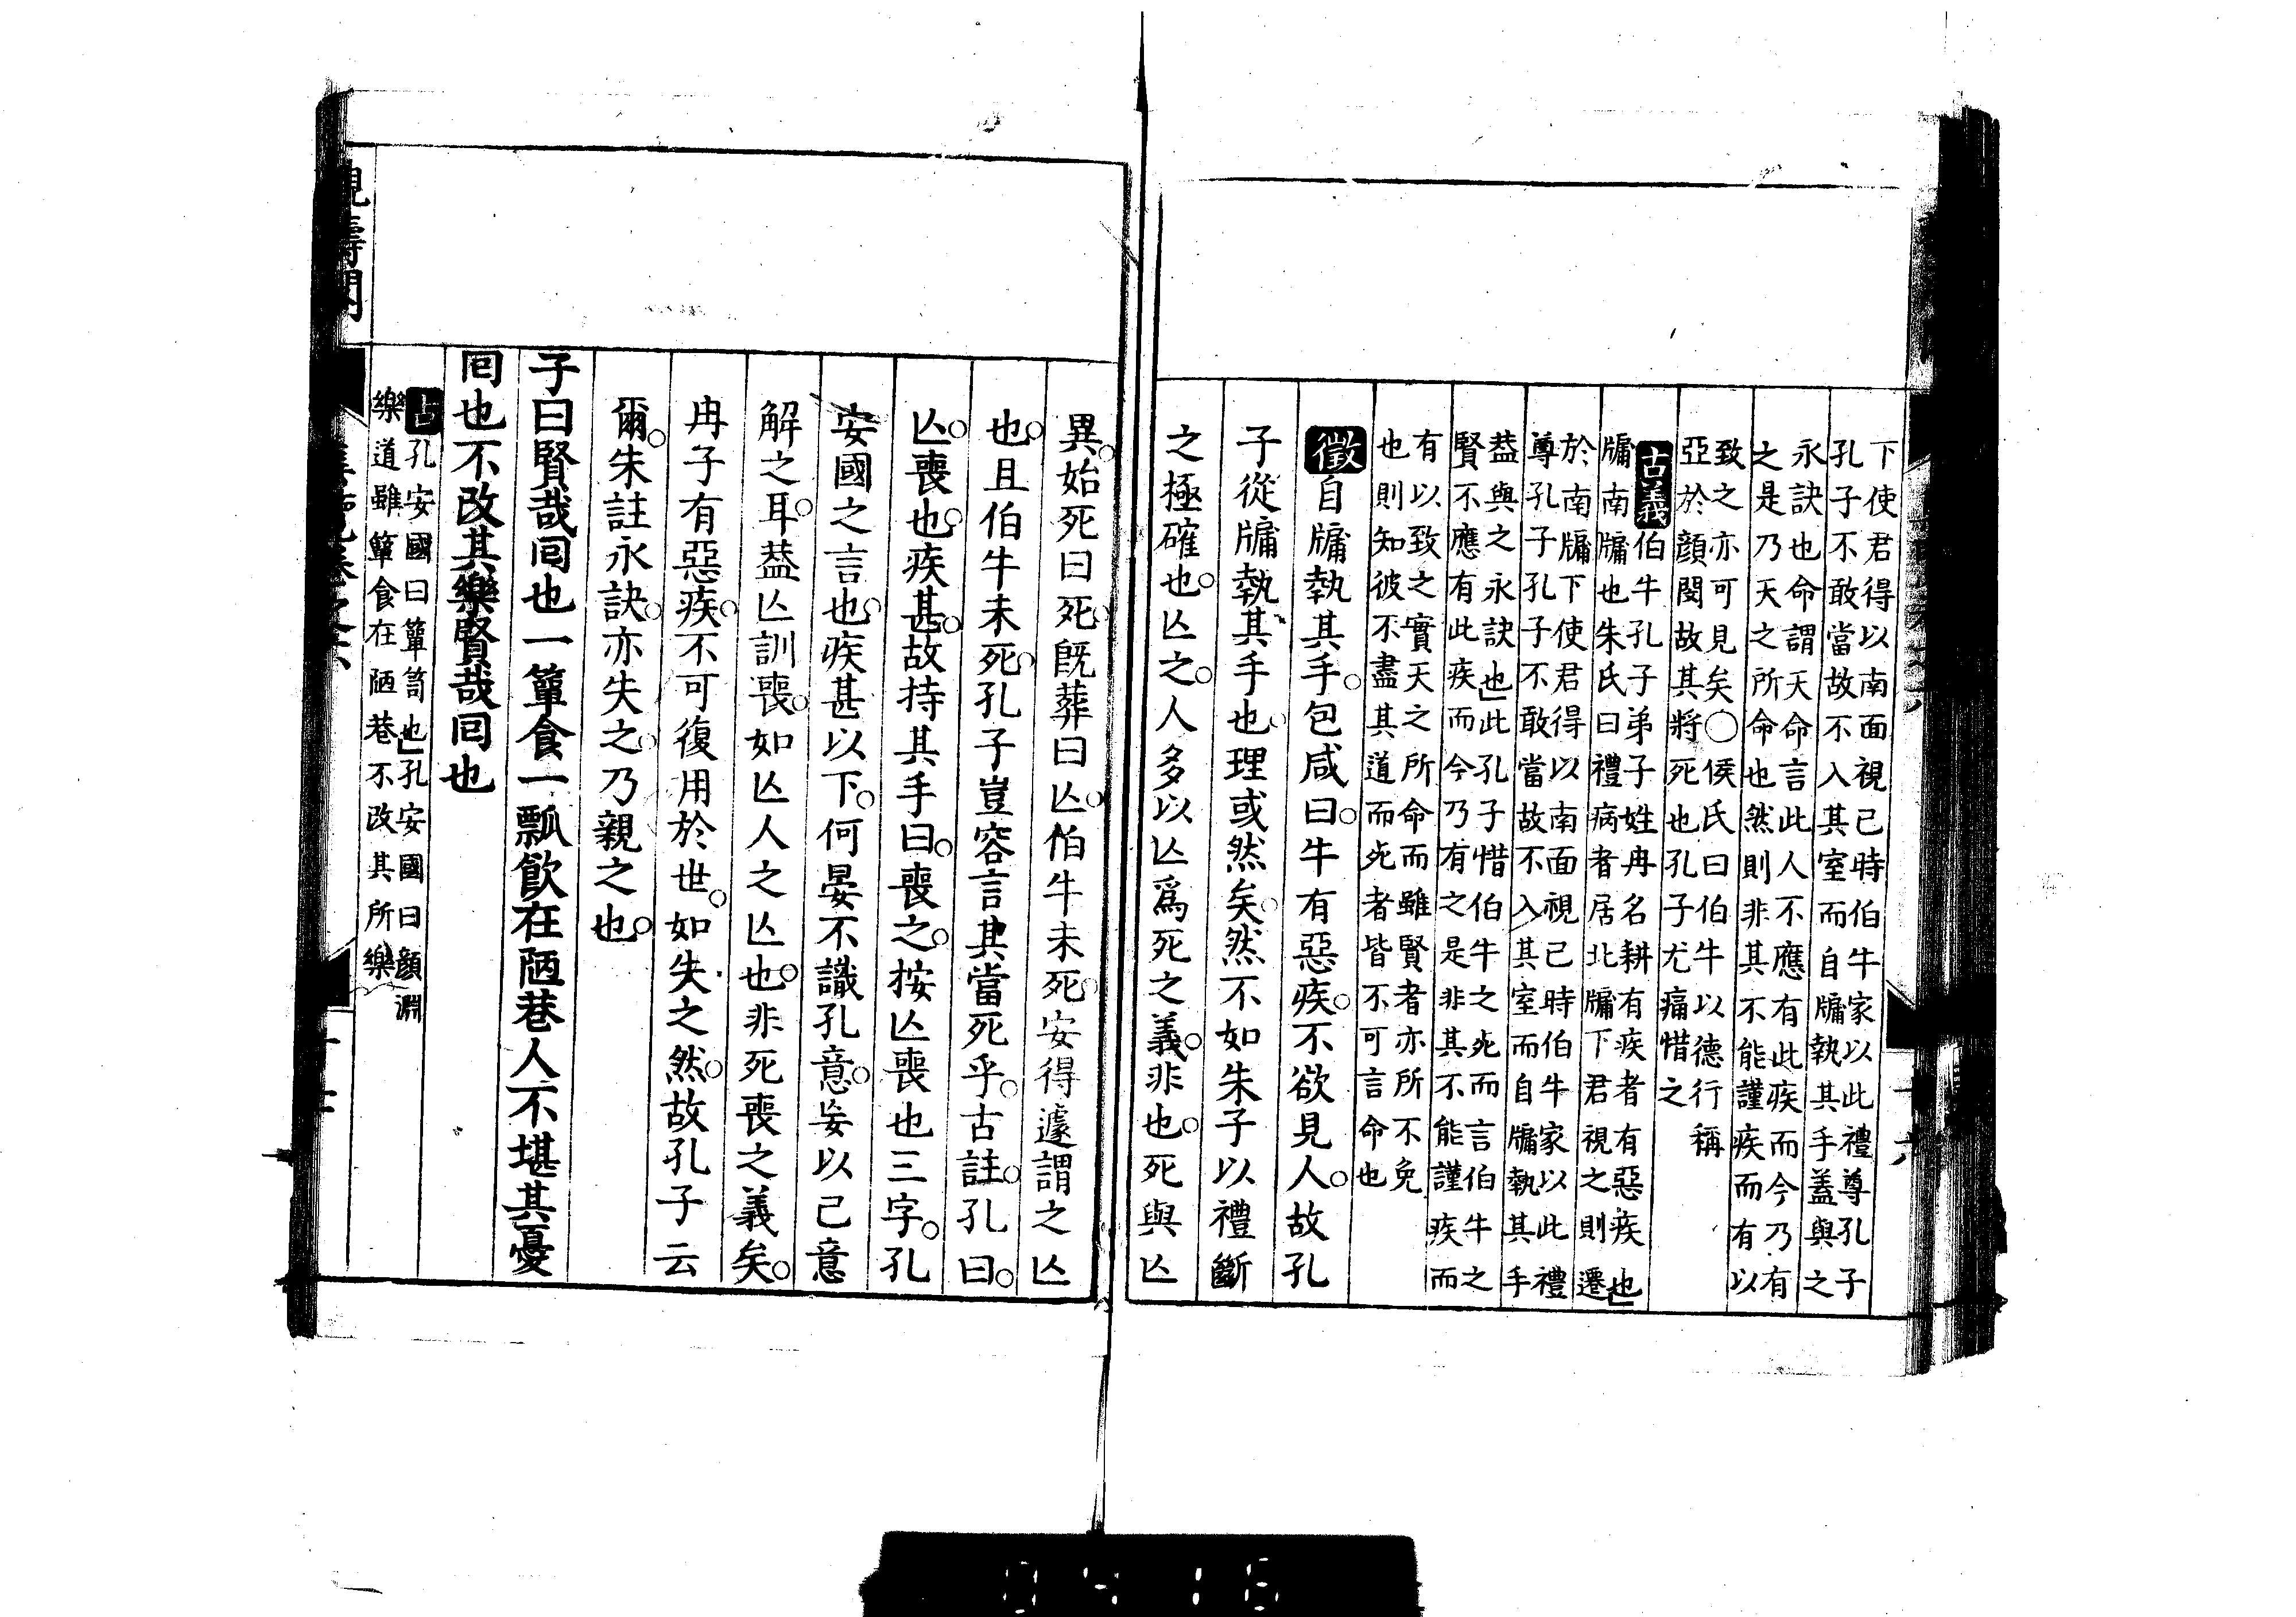 下使君得以南面視己時伯牛家以此禮尊孔子
孔子不敢當故不入其室而自牖執其手蓋與之
永訣也命謂天命言此人不應有此疾而今乃有
之是乃天之所命也然則非其不能謹疾而有以
致之亦可見矣○侯氏曰伯牛以德行稱
亞於顔閔故其將死也孔子尤痛惜之
古義伯牛孔子弟子姓冉名耕有疾者有惡疾也
牖南牖也朱氏曰禮病者居北牖下君視之則遷
於南牖下使君得以南面視己時伯牛家以此禮
尊孔子孔子不敢當故不入其室而自牖執其手
葢與之永訣也此孔子惜伯牛之死而言伯牛之
賢不應有此疾而今乃有之是非其不能謹疾而
有以致之實天之所命而雖賢者亦所不免
也則知彼不盡其道而死者皆不可言命也
徵自牖執其手包咸曰牛有惡疾不欲見人故孔
子從牖執其手也理或然矣然不如朱子以禮斷
之極確也亾之人多以亾爲死之義非也死與亾
異始死曰死旣葬曰亾伯牛未死安得遽謂之亾
也且伯牛未死孔子豈容言其當死乎古註孔曰
亾喪也疾甚故持其手曰喪之按亾喪也三字孔
安國之言也疾甚以下何晏不識孔意妄以己意
解之耳葢亾訓喪如亾人之亾也非死喪之義矣
冉子有惡疾不可復用於世如失之然故孔子云
爾朱註永訣亦失之乃親之也
子曰賢哉囘也一簞食一瓢飮在陋巷人不堪其憂
囘也不改其樂賢哉囘也
古孔安國曰簞笥也孔安國曰顔淵
樂道雖簞食在陋巷不改其所樂